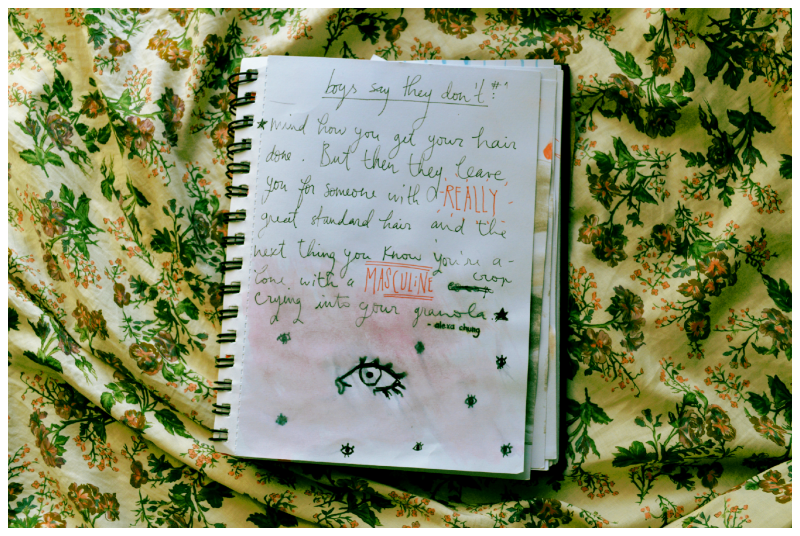 boys say they don't
mind how you get your hair
done. But then they leave
you for someone with a REALLY
great standard hair and the
next thing you know you're a-
lone with a MASCULINE crop
crying into your granola.
- alexa chung